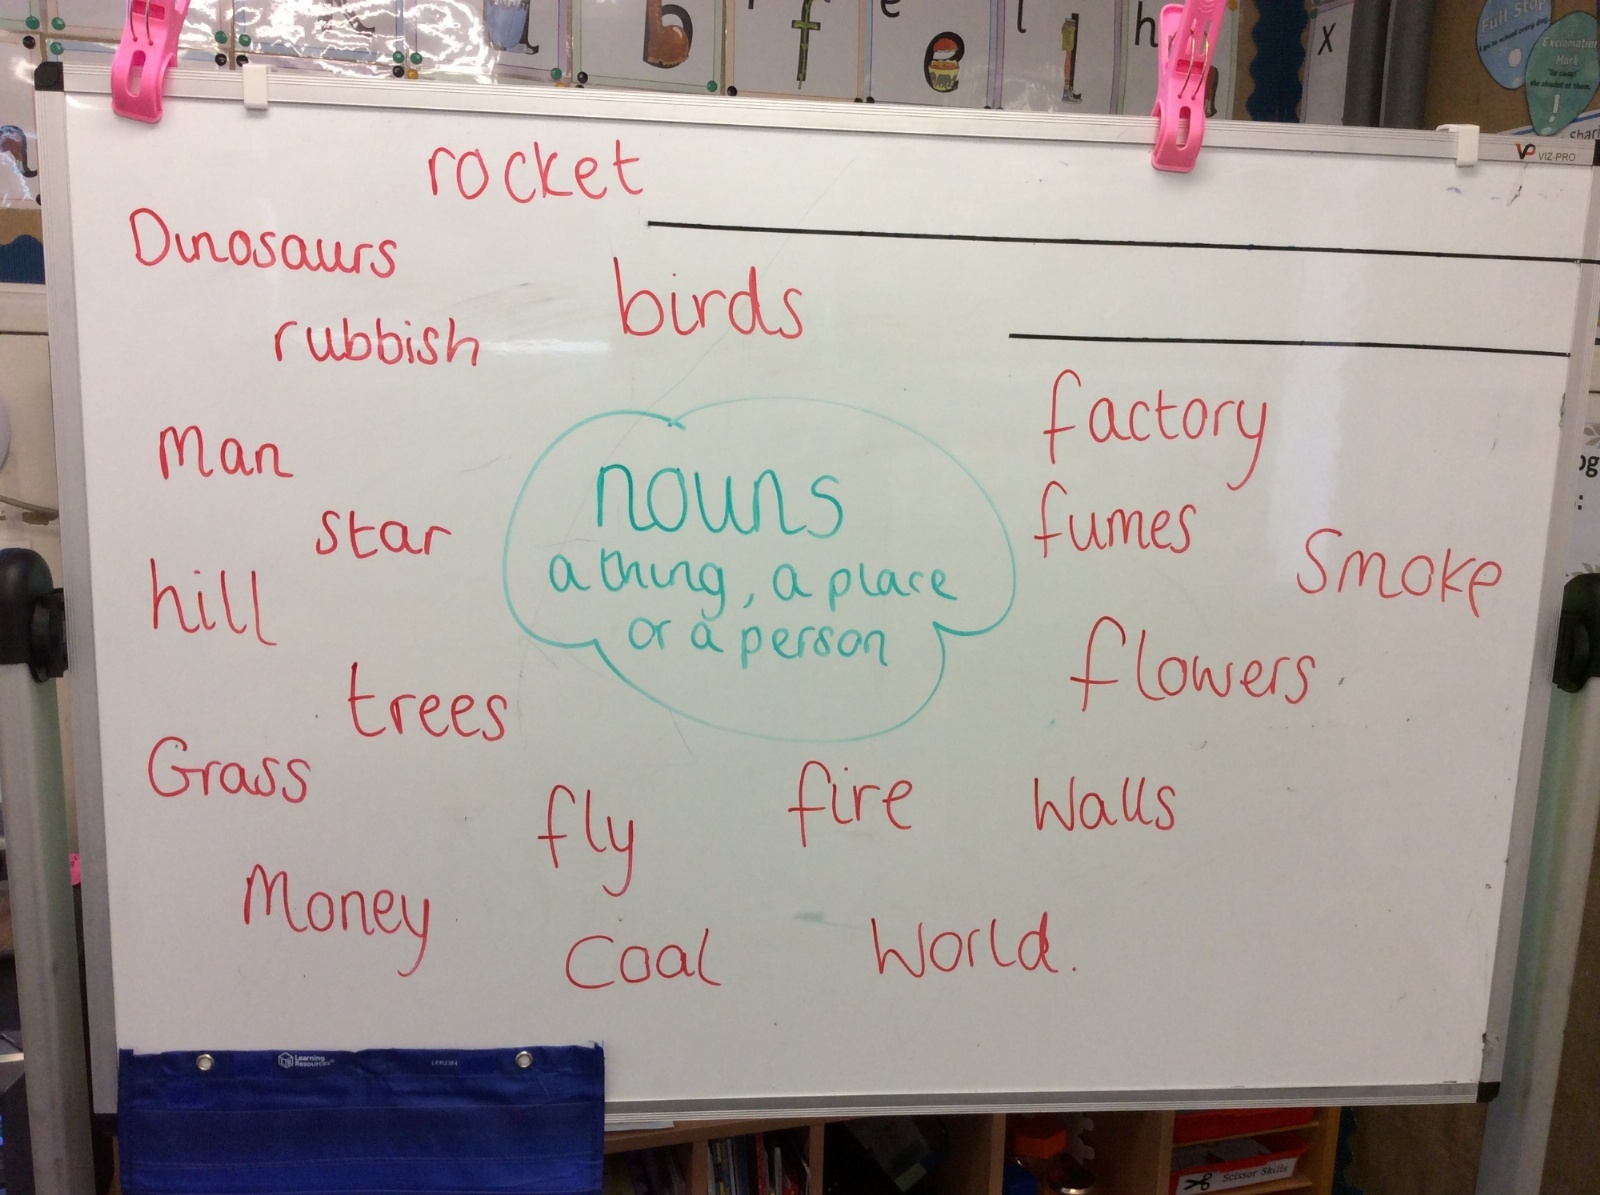 b f e l h
x
Full Stop
Exclamation
Mark
!
VIZ-PRO
rocket
Dinosaurs
birds
rubbish
factory
Man
nouns
star
fumes
Smoke
a thing, a place
hill
or a person
flowers
trees
Grass
fire
Walls
fly
Money
Coal
World.
Learning
Resources
Scissor Skills